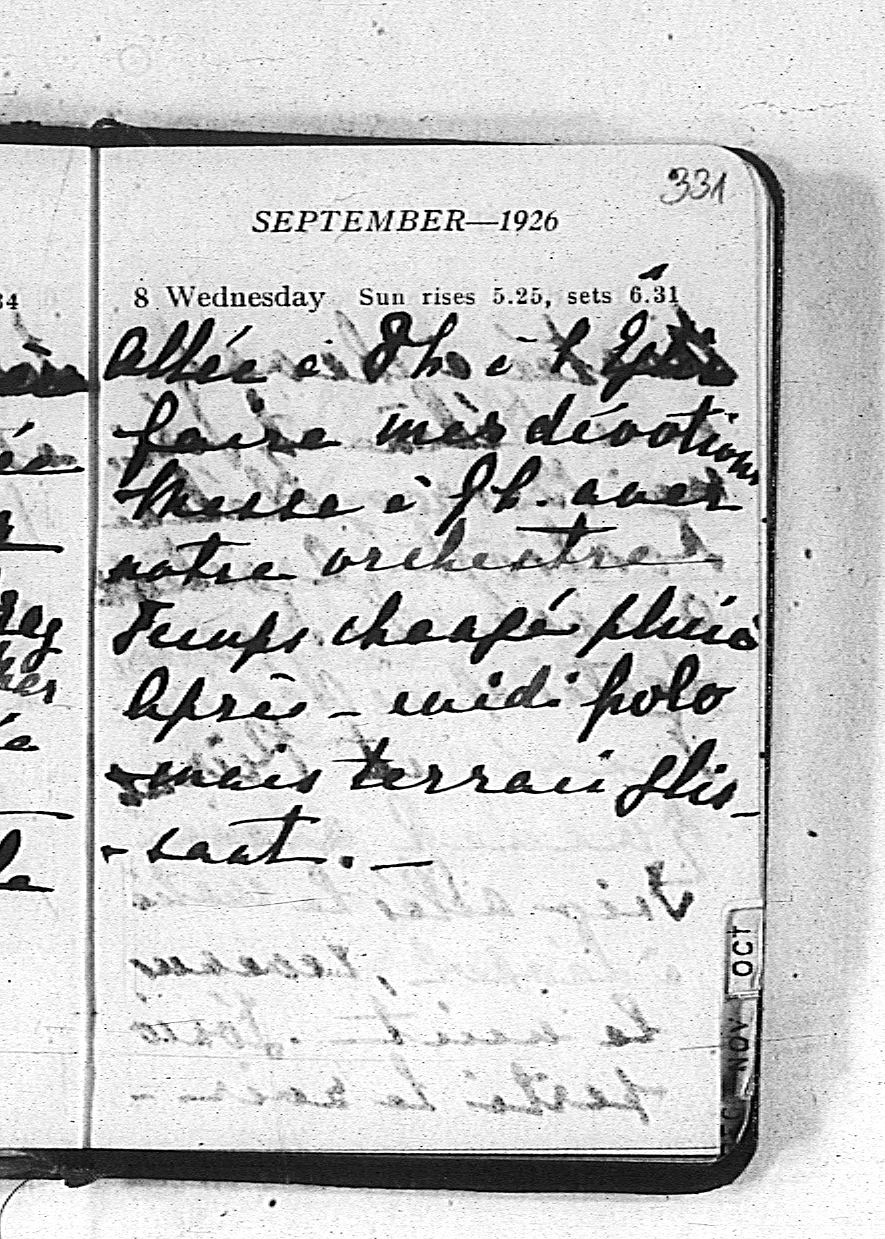 331
SEPTEMBER—1926
8 Wednesday Sun rises 5.25, sets 6.31
Allée à 8 h. à l'Eglise
faire mes dévotions
Messe à 9 h. avec
notre orchestre
Temps changé pluie
Après-midi polo
mais terrain glis-
-sant. —
OCT
NOV